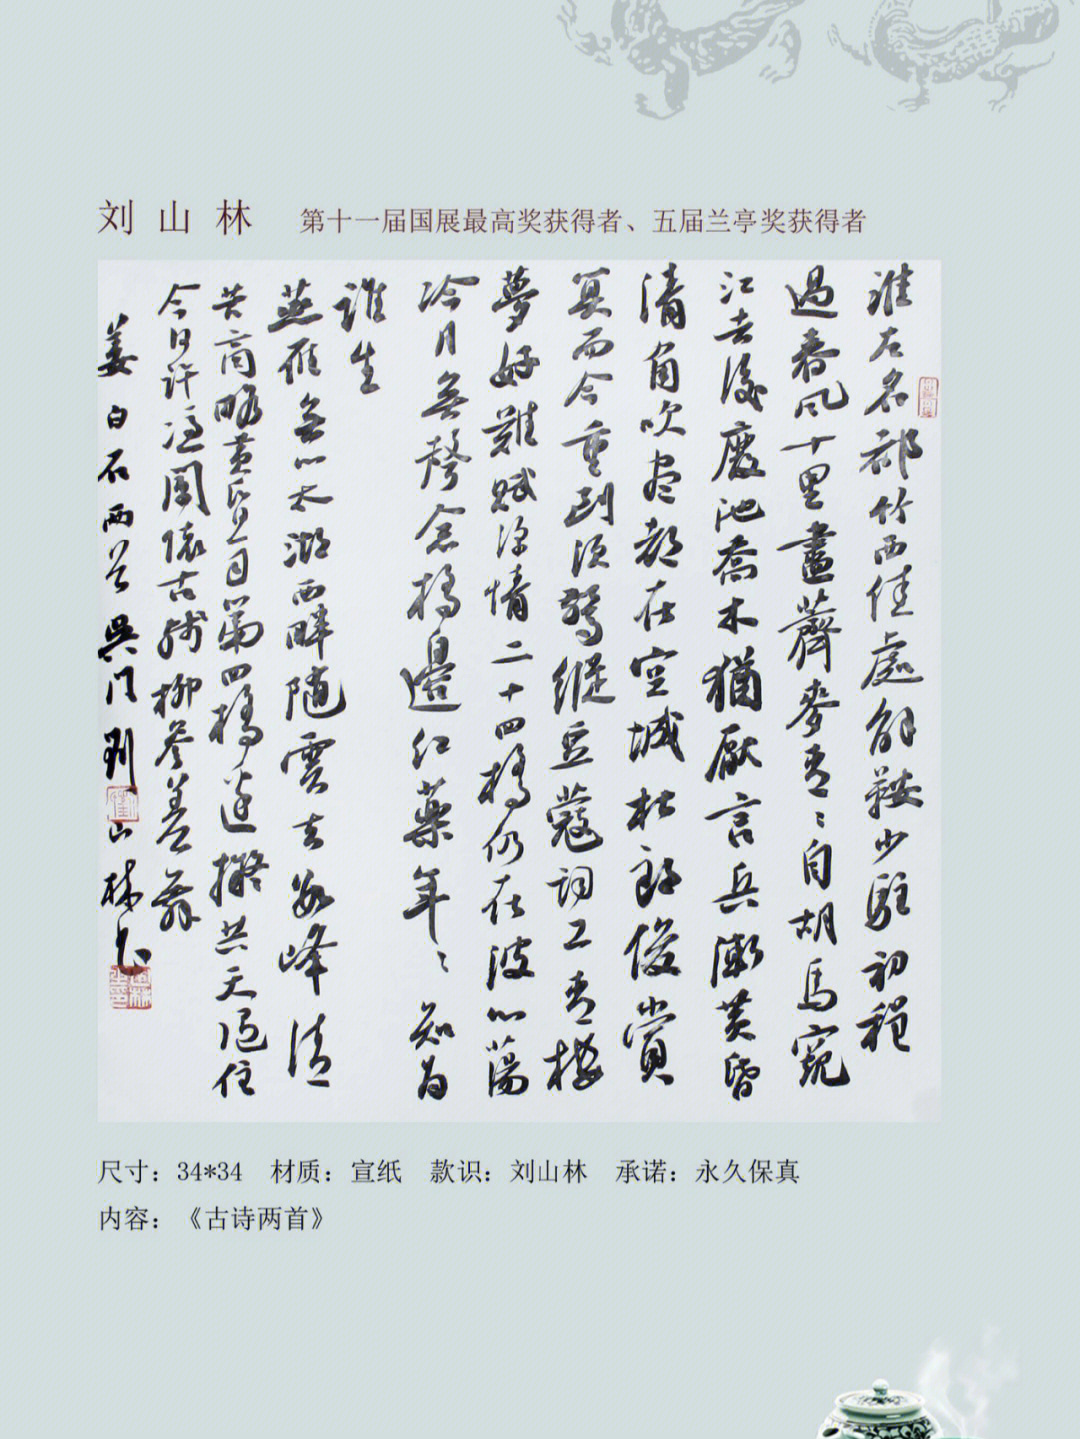 刘山林 第十一届国展最高奖获得者、五届兰亭奖获得者
淮左名都竹西佳處解鞍少駐初程
過春風十里盡薺麥青〻自胡馬窺
江去後廢池喬木猶厭言兵漸黃昏
清角吹寒都在空城杜郎俊賞
算而今重到須驚縱豆蔻詞工青樓
夢好難賦深情二十四橋仍在波心蕩
冷月無聲念橋邊紅藥年〻知為
誰生
燕雁無心太湖西畔隨雲去數峰清
苦商略黃昏雨第四橋邊擬共天隨住
今日許憑闌懷古殘柳參差舞
姜白石兩首吳門劉山林書
尺寸：34*34 材质：宣纸 款识：刘山林 承诺：永久保真
内容：《古诗两首》